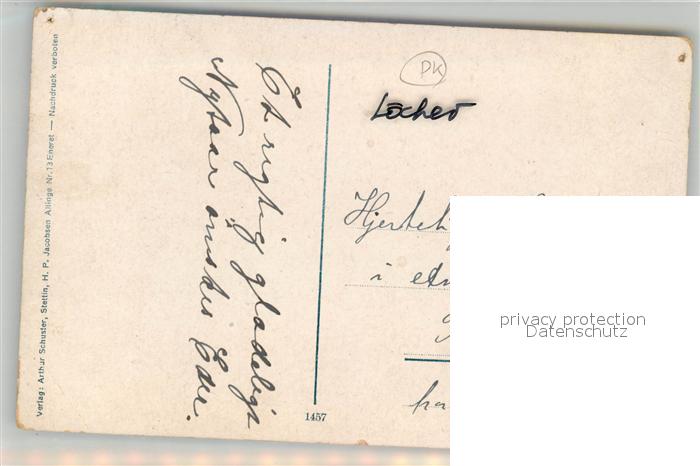 Verlag: Arthur Schuster, Stettin, H. P. Jacobsen Allinge Nr. 13 Eneret — Nachdruck verboten
Et rigtig glædeligt
Nytaar ønskes Eder.
1457
PK
Löcher
Hjertel
i
privacy protection
Datenschutz